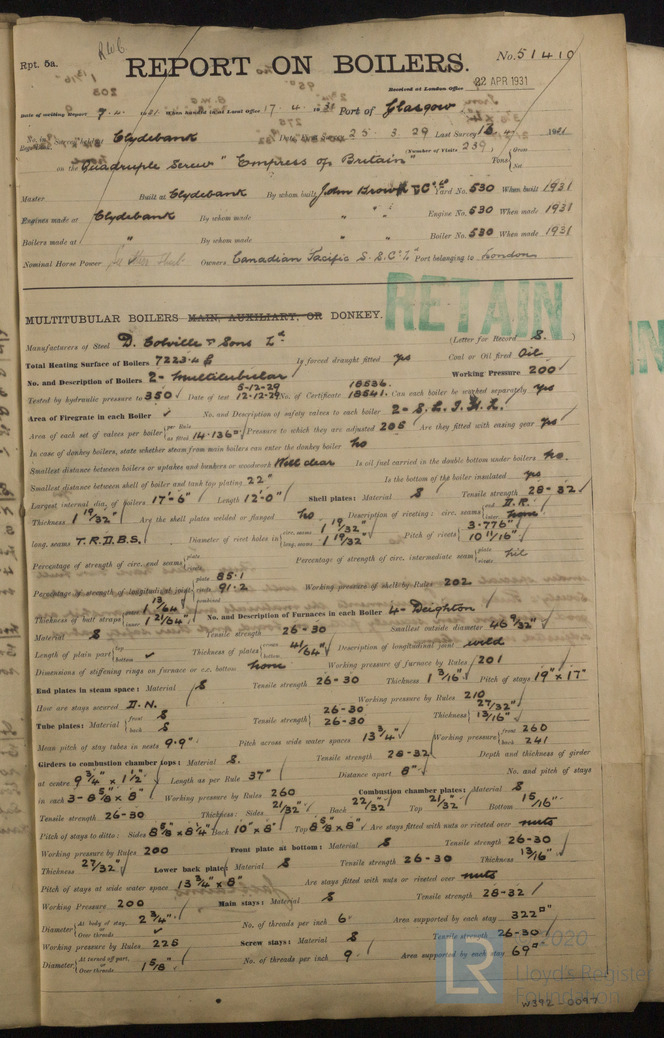 Rpt. 5a.
REPORT ON BOILERS.
No. 51410
Received at London Office 22 APR 1931
Date of writing Report 9. 4. 1931 When handed in at Local Office 17. 4. 1931 Port of Glasgow
No. in Survey held at Clydebank Date, First Survey 25. 3. 29 Last Survey 1931
on the Quadruple Screw "Empress of Britain" (Number of Visits 239) Tons Gross Net
Master Built at Clydebank By whom built John Brown & Co Ld Yard No. 530 When built 1931
Engines made at Clydebank By whom made " " Engine No. 530 When made 1931
Boilers made at " By whom made " " Boiler No. 530 When made 1931
Nominal Horse Power Owners Canadian Pacific S. S. Co. Ld Port belonging to London
RETAIN
MULTITUBULAR BOILERS MAIN, AUXILIARY, OR DONKEY.
Manufacturers of Steel D. Colville & Sons Ld (Letter for Record S.)
Total Heating Surface of Boilers 7223.4 Is forced draught fitted yes Coal or Oil fired Oil
No. and Description of Boilers 2 - Multitubular Working Pressure 200
Tested by hydraulic pressure to 350 Date of test 5-12-29 12-12-29 No. of Certificate 18536. 18541. Can each boiler be worked separately yes
Area of Firegrate in each Boiler ✓ No. and Description of safety valves to each boiler 2 - S. L. I. H. L.
Area of each set of valves per boiler per Rule as fitted 14.136" Pressure to which they are adjusted 205 Are they fitted with easing gear yes
In case of donkey boilers, state whether steam from main boilers can enter the donkey boiler no
Smallest distance between boilers or uptakes and bunkers or woodwork Well clear Is oil fuel carried in the double bottom under boilers no.
Smallest distance between shell of boiler and tank top plating 22" Is the bottom of the boiler insulated yes
Largest internal dia. of boilers 17'-6" Length 12'-0" Shell plates: Material S Tensile strength 28-32
Thickness 1 19/32" Are the shell plates welded or flanged no Description of riveting: circ. seams end D.R. inter.
long. seams T.R.D.B.S. Diameter of rivet holes in circ. seams 1 19/32" long. seams 1 19/32" Pitch of rivets 3.776" 10 11/16"
Percentage of strength of circ. end seams plate rivets Percentage of strength of circ. intermediate seam plate rivets nil
Percentage of strength of longitudinal joint plate 85.1 rivets 91.2 combined Working pressure of shell by Rules 202
Thickness of butt straps outer 1 13/64" inner 1 21/64" No. and Description of Furnaces in each Boiler 4 - Deighton
Material S Tensile strength 26-30 Smallest outside diameter 46 9/32"
Length of plain part top bottom ✓ Thickness of plates crown bottom 41/64" Description of longitudinal joint weld
Dimensions of stiffening rings on furnace or c.c. bottom none Working pressure of furnace by Rules 201
End plates in steam space: Material S Tensile strength 26-30 Thickness 1 3/16" Pitch of stays 19" x 17"
How are stays secured D.N. Working pressure by Rules 210
Tube plates: Material front S back S Tensile strength 26-30 26-30 Thickness 27/32" 13/16"
Mean pitch of stay tubes in nests 9.9" Pitch across wide water spaces 13 3/4" Working pressure front 260 back 241
Girders to combustion chamber tops: Material S. Tensile strength 28-32 Depth and thickness of girder
at centre 9 3/4" x 1 1/2" Length as per Rule 37" Distance apart 8" No. and pitch of stays
in each 3 - 8 5/8" x 8" Working pressure by Rules 260 Combustion chamber plates: Material S
Tensile strength 26-30 Thickness: Sides 21/32" Back 22/32" Top 21/32" Bottom 15/16"
Pitch of stays to ditto: Sides 8 5/8" x 8 1/4" Back 10" x 8" Top 8 5/8" x 8" Are stays fitted with nuts or riveted over nuts
Working pressure by Rules 200 Front plate at bottom: Material S Tensile strength 26-30
Thickness 27/32" Lower back plate: Material S Tensile strength 26-30 Thickness 13/16"
Pitch of stays at wide water space 13 3/4" x 8" Are stays fitted with nuts or riveted over nuts
Working Pressure 200 Main stays: Material S Tensile strength 28-32
Diameter At body of stay, 2 3/4" or Over threads ✓ No. of threads per inch 6 Area supported by each stay 322"
Working pressure by Rules 225 Screw stays: Material S Tensile strength 26-30
Diameter At turned off part, or Over threads 1 5/8" No. of threads per inch 9 Area supported by each stay 69"
LR
2020
Lloyd's Register
Foundation
W392-0097